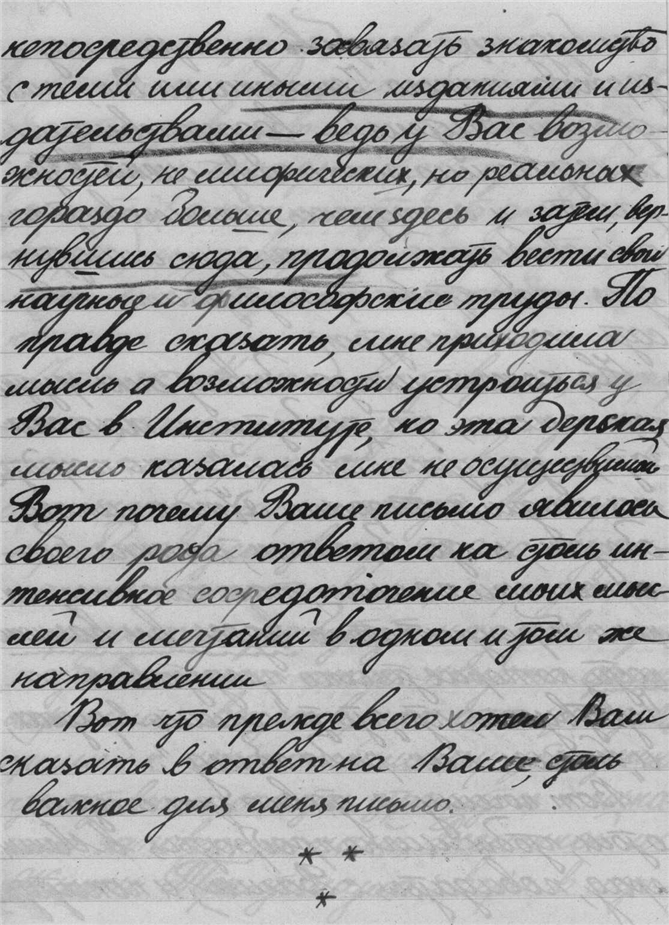 непосредственно завязать знакомство
с теми или иными изданиями и из-
дательствами — ведь у Вас возмо-
жностей, не мифических, но реальных
гораздо больше, чем здесь и затем, вер-
нувшись сюда, продолжать вести свои
научные и философские труды. По
правде сказать, мне приходила
мысль о возможности устроиться у
Вас в Институте, но эта дерзкая
мысль казалась мне не осуществимой
Вот почему Ваше письмо явилось
своего рода ответом на столь ин-
тенсивное сосредоточение моих мыс-
лей и мечтаний в одном и том же
направлении
Вот что прежде всего хотел Вам
сказать в ответ на Ваше, столь
важное для меня письмо.
* *
*